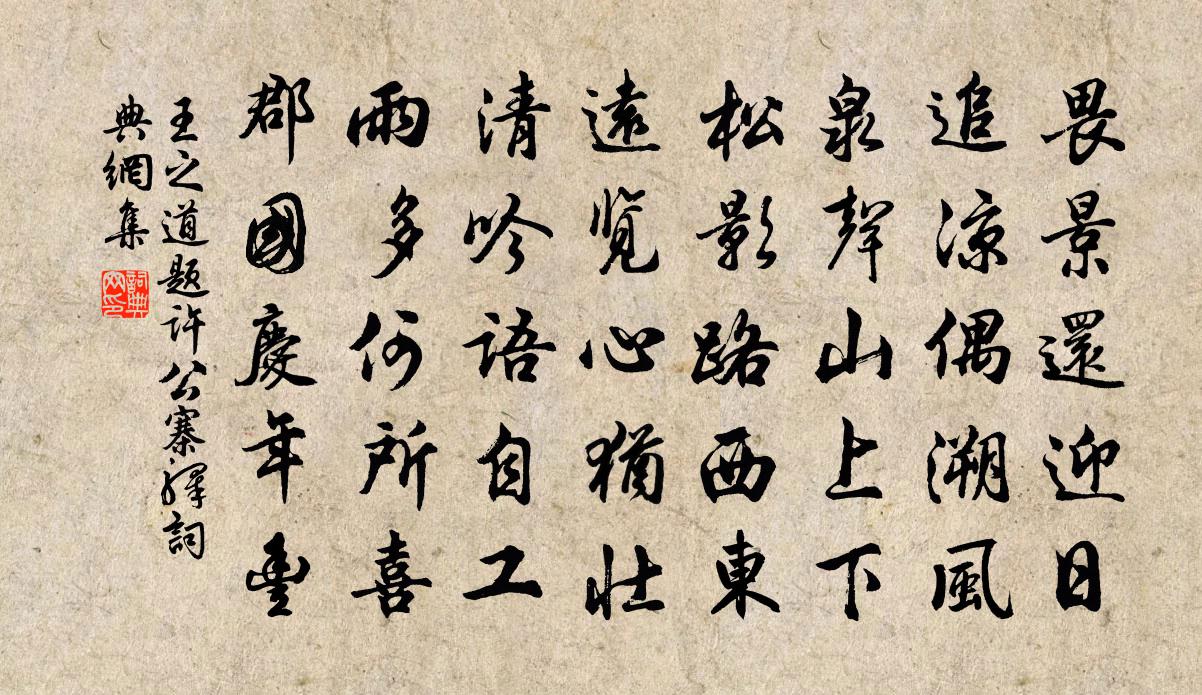 畏景還迎日
追涼偶溯風
泉聲山上下
松影路西東
遠覽心猶壯
清吟語自工
雨多何所喜
郡國慶年豐
王之道題許公寨驛詞
典網集
詞典
网印